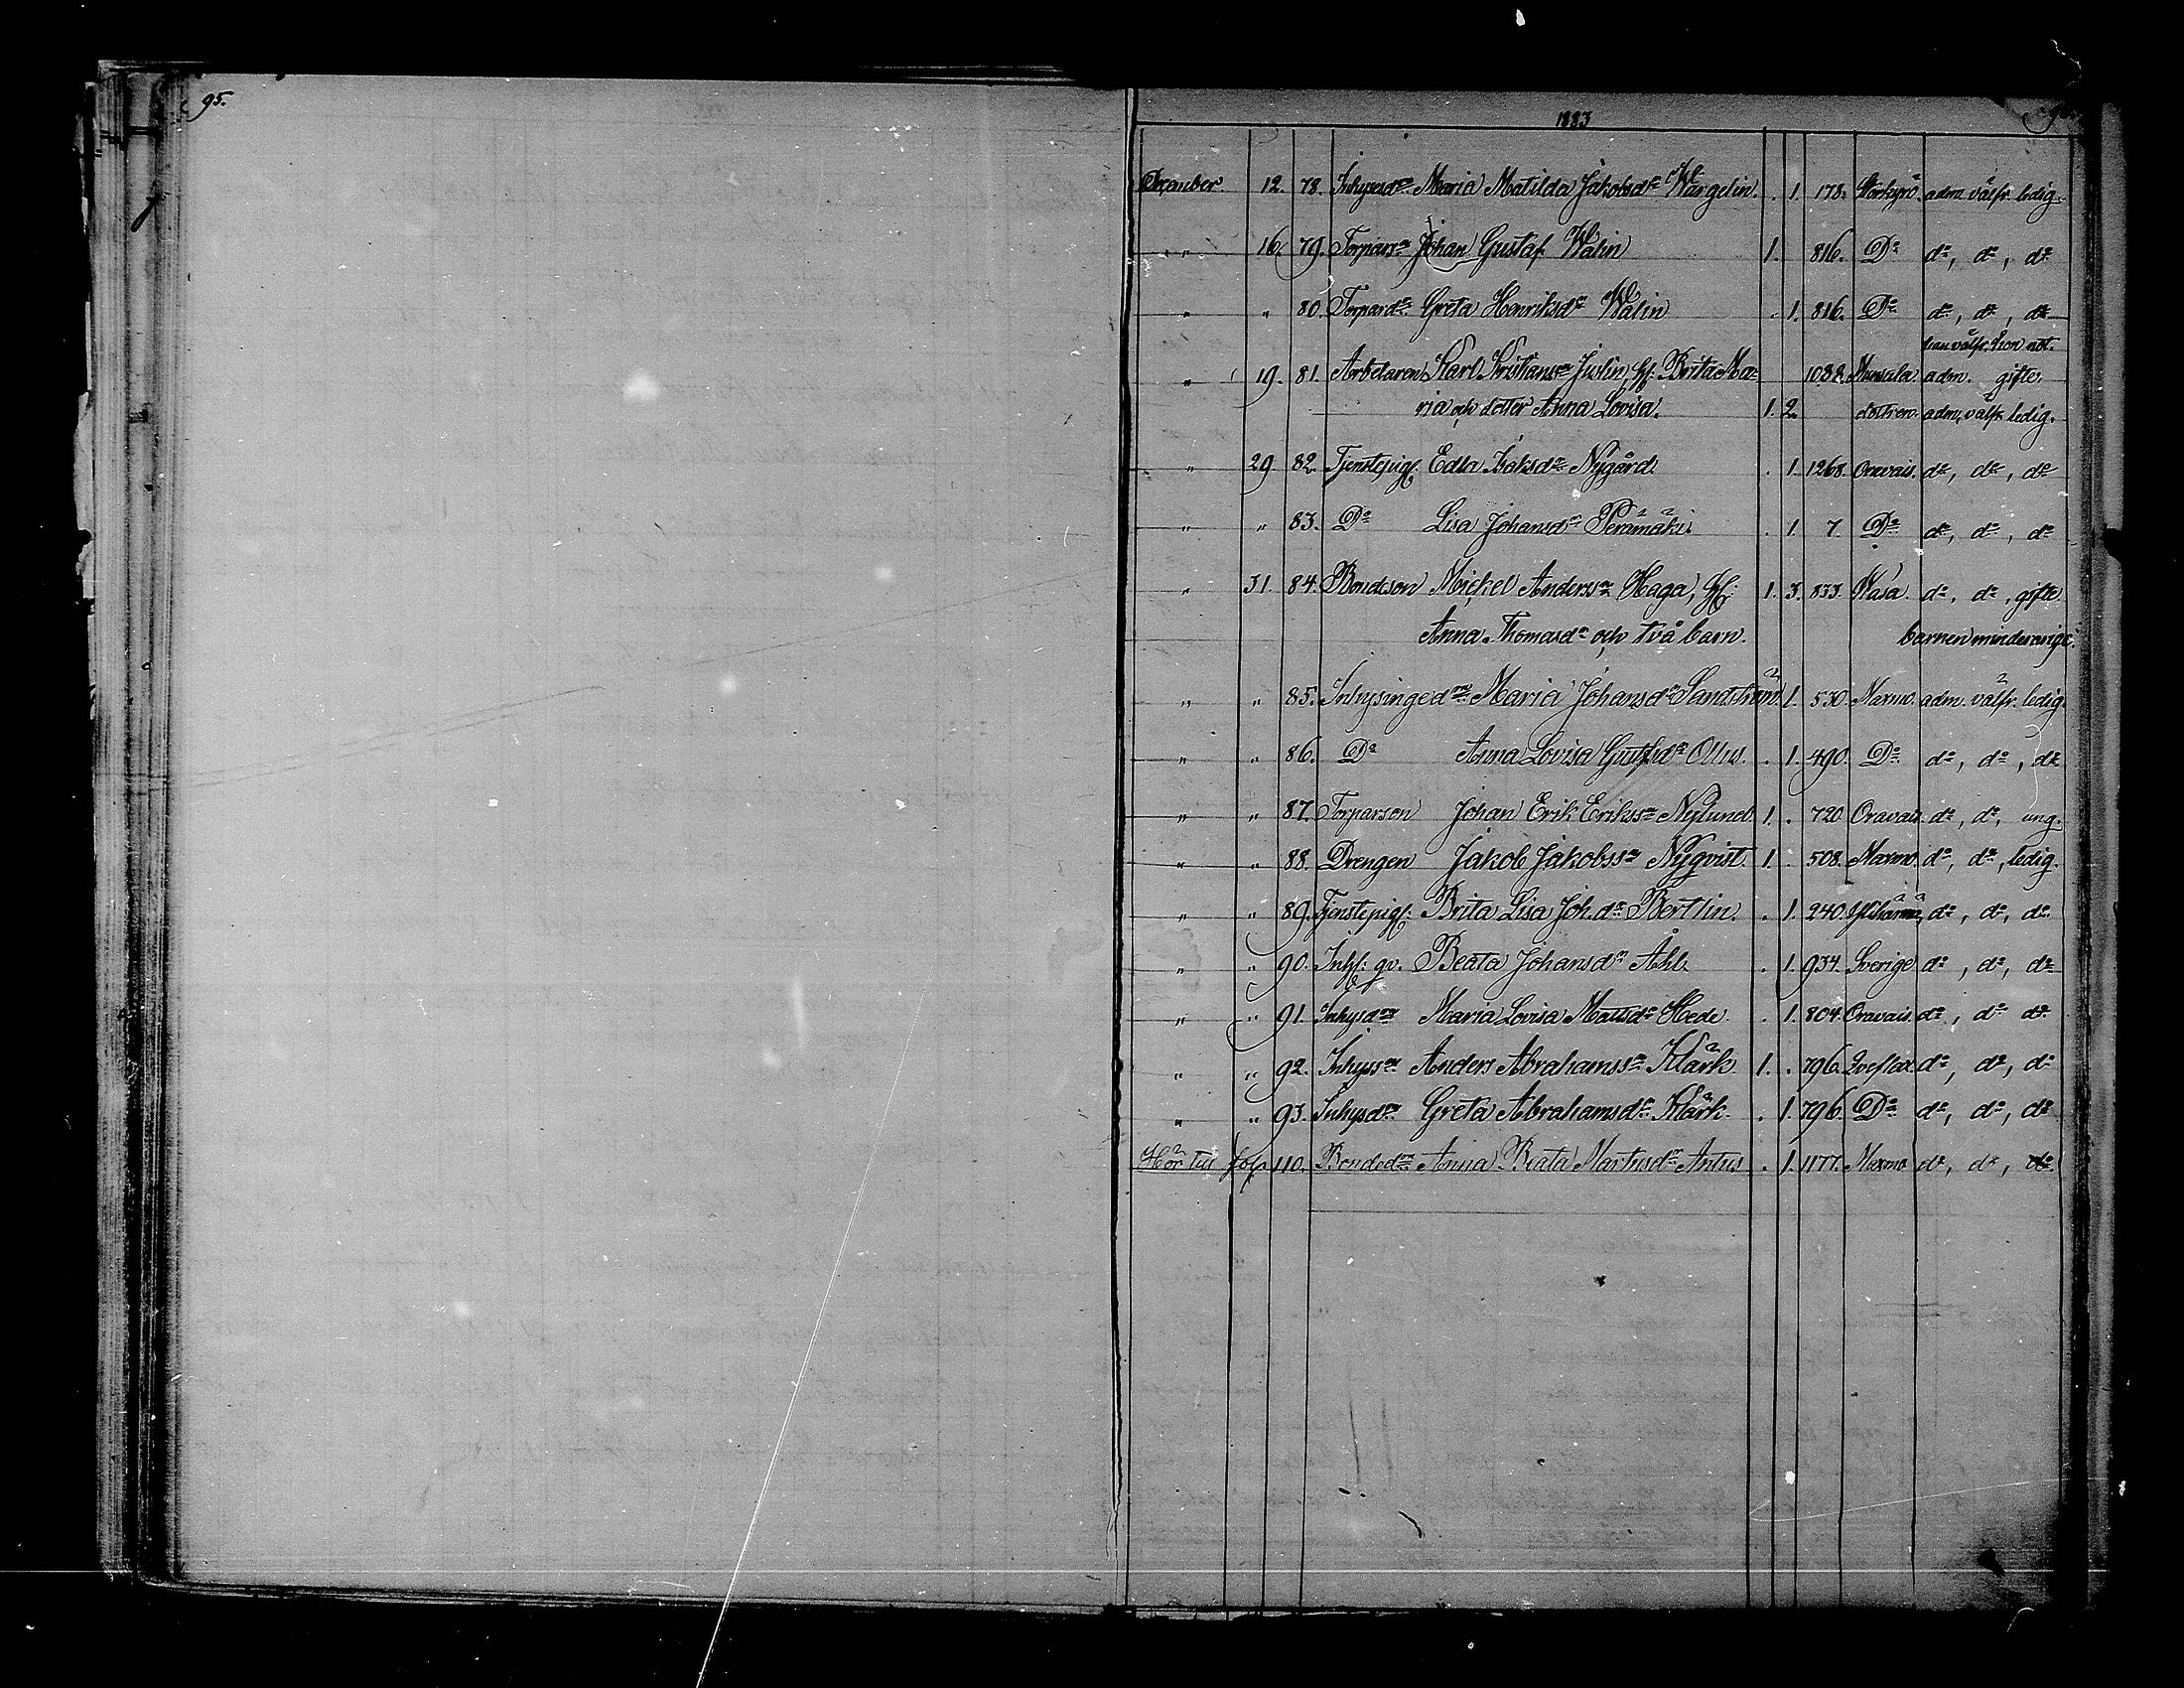 95.
1883
December. 12. 78. Inhysesdr Maria Matilda Jakobsdr Wärgelin. . 1. 178. Storkyrö. adm. välfr. ledig.
" 16. 79. Torparsn Johan Gustaf Wålin 1. 816. Do do, do, do
" " 80. Torpardr Greta Henriksdr Wålin . 1. 816. Do do, do, do
han välfr. hon not.
" 19. 81. Arbetaren Karl Kristianssn Juslin, h: Brita Ma- 1088. Munsala. adm. gifte.
ria och dotter Anna Lovisa. 1. 2. dottren. adm, välfr. ledig.
" 29 82. Tjenstepig. Edla Isaksdr Nygård. . 1. 1268. Oravais. do, do, do
" " 83. Do Lisa Johansdr Perämäki. . 1. 7. Do do, do, do
" 31. 84. Bondeson Mickel Anderssn Haga, h: 1. 3. 833. Wasa. do, do, gifte.
Anna Thomasdr och två barn. barnen minderårige.
" " 85. Inhysingedr Maria Johansdr Sandström. 1. 530. Maxmo. adm. välfr. ledig.
" " 86. Do Anna Lovisa Gustfsdr Ollus. . 1. 490. Do do, do, do
" " 87. Torparson Johan Erik Erikssn Nylund. 1. . 720 Oravais. do, do, ung.
" " 88. Drengen Jakob Jakobssn Nyqvist. 1. . 508. Maxmo. do, do, ledig.
" " 89. Tjenstepig: Brita Lisa Joh. dr Bertlin. . 1. 240. Ylihärmä, do, do, do
" " 90. Inh: qv. Beata Johansdr Åhl. . 1. 934. Sverige do, do, do
" " 91. Inhysdr Maria Lovisa Mattsdr Hede. . 1. 804. Oravais. do, do do
" " 92. Inhyssn Anders Abrahamssn Klärk. 1. . 796. Qveflax. do, do, do
" " 93. Inhysdr Greta Abrahamsdr Klärk. . 1. 796. Do do, do, do
Hör till fol. 110. Bondedr Anna Beata Martinsdr Antus . 1. 1177. Maxmo do, do, do.